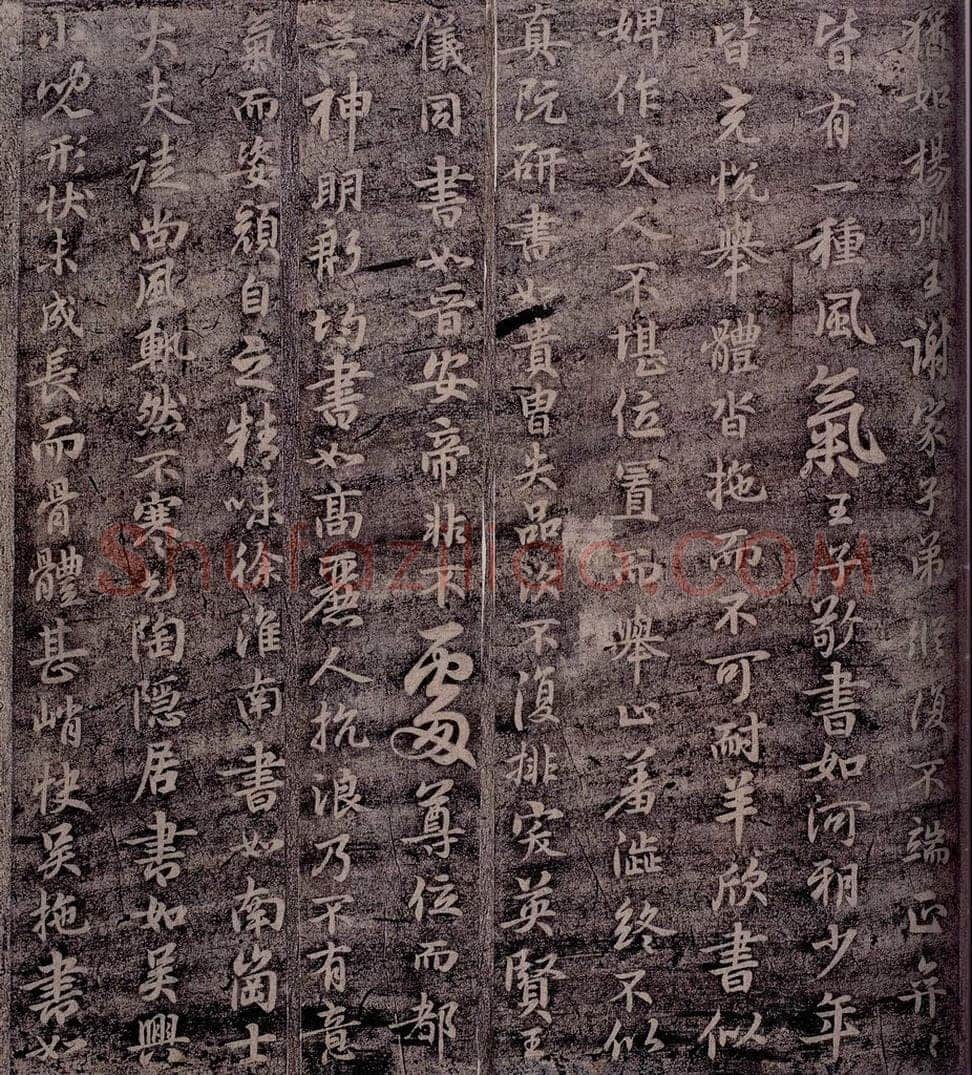 猶如揚州王謝家子弟縱復不端正弈〻
皆有一種風氣王子敬書如河朔少年
皆充悅舉體沓拖而不可耐羊欣書似
婢作夫人不堪位置而舉止羞澁終不似
真阮研書如貴胄失品次不復排突英賢王
儀同書如晉安帝非不處尊位而都
無神明郡均書如高麗人抗浪乃不有意
氣而姿顏自乏精味徐淮南書如南崗士
大夫徒尚風軌然不寒乞陶隱居書如吳興
小兒形狀未成長而骨體甚峭快吳拖書如
Shufaziliao.COM